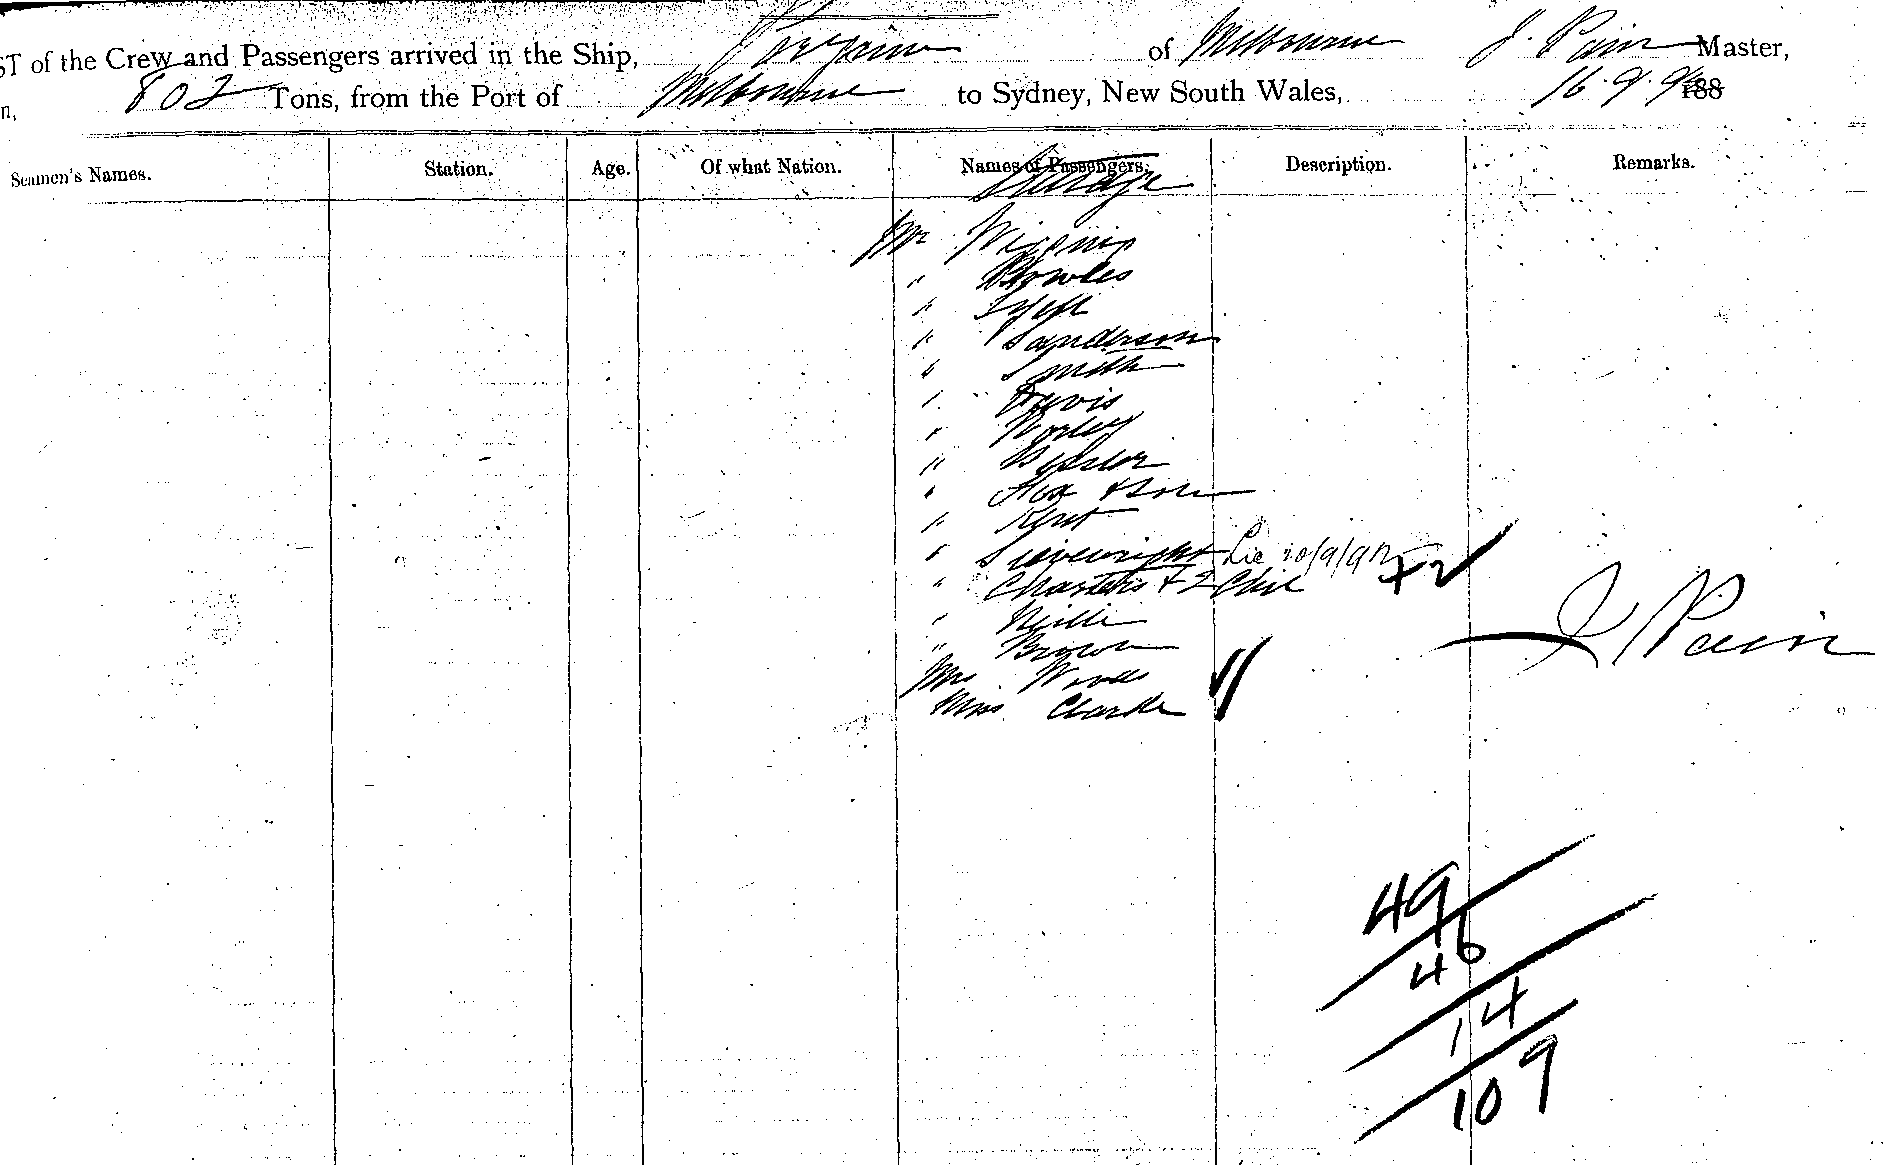 ST of the Crew and Passengers arrived in the Ship, of Melbourne J. Pain Master,
n, 802 Tons, from the Port of Melbourne to Sydney, New South Wales, 16.9.9 188
Seamen's Names. Station. Age. Of what Nation. Names of Passengers. Description. Remarks.
Steerage
Mr
" Bowles
"
" Sanderson
" Smith
" Davis
" Worley
"
" Fox & Son
" Kent
" Sievewright
" Charters + 2 Chil + 2
"
" Brown
Mrs Woods
Miss Clarke
J Pain
49
46
14
109